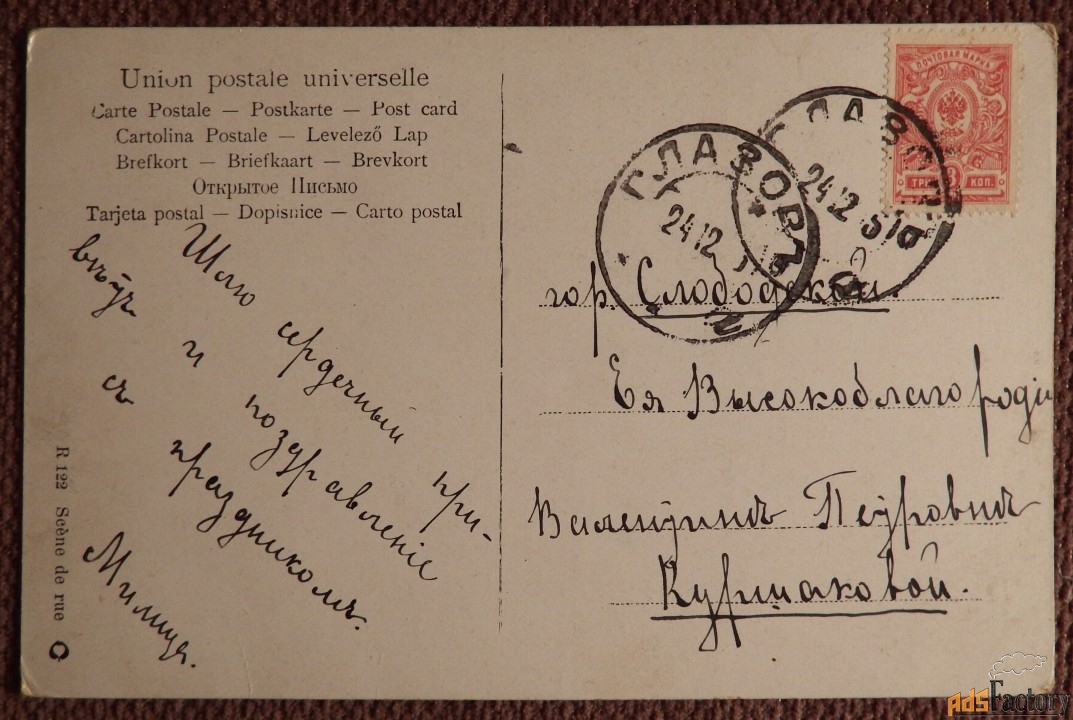 Union postale universelle
Carte Postale — Postkarte — Post card
Cartolina Postale — Levelező Lap
Brefkort — Briefkaart — Brevkort
Открытое Письмо
Tarjeta postal — Dopisnice — Carto postal
Шлю сердечный при-
вѣтъ и поздравленіе
съ праздникомъ.
Милица.
R 122 Scène de rue
ПОЧТОВАЯ МАРКА
3
ТРИ КОП.
ГЛАЗОВЪ
24 12
ГЛАЗОВ
24 12
гор. Слободской.
Ея Высокоблагороді
Валентинѣ Петровнѣ
Куршаковой.
AdsFactory